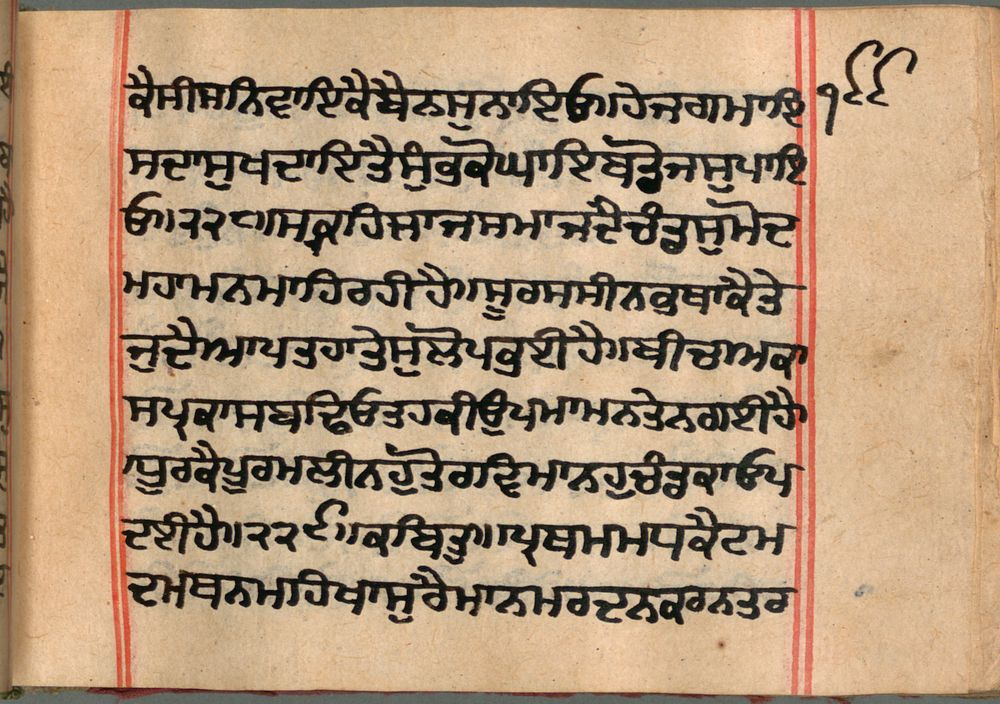 ਕੈ ਸੀਸ ਨਿਵਾਇ ਕੈ ਬੈਨ ਸੁਨਾਇਓ॥ ਹੇ ਜਗ ਮਾਇ ੧੯੯
ਸਦਾ ਸੁਖ ਦਾਇ ਤੈ ਸੁੰਭ ਕੋ ਘਾਇ ਬਡੋ ਜਸੁ ਪਾਇ
ਓ॥੨੨੮॥ ਸਕ੍ਰਹਿ ਸਾਜ ਸਮਾਜ ਦੈ ਚੰਡ ਸੁ ਮੋਦ
ਮਹਾ ਮਨ ਮਾਹਿ ਰਹੀ ਹੈ॥ ਸੂਰ ਸਸੀ ਨਭ ਥਾਕੈ ਤੇ
ਜੁ ਦੈ ਆਪ ਤਹਾ ਤੇ ਸੁ ਲੋਪ ਭਈ ਹੈ॥ ਬੀਚ ਅਕਾ
ਸ ਪ੍ਰਕਾਸ ਬਢਿਓ ਤਹ ਕੀ ਉਪਮਾ ਮਨ ਤੇ ਨ ਗਈ ਹੈ
॥ਧੁਰ ਕੈ ਪੁਰ ਮਲੀਨ ਹੁਤੋ ਰਵਿ ਮਾਨਹੁ ਚੰਡਕਾ ਓਪ
ਦਈ ਹੈ॥੨੨੯॥ ਕਬਿਤੁ॥ ਪ੍ਰਥਮ ਮਧ ਕੈਟ ਮ
ਦ ਮਥਨ ਮਹਿਖਾਸੁਰੈ ਮਾਨ ਮਰਦਨ ਕਰਨ ਤਰ